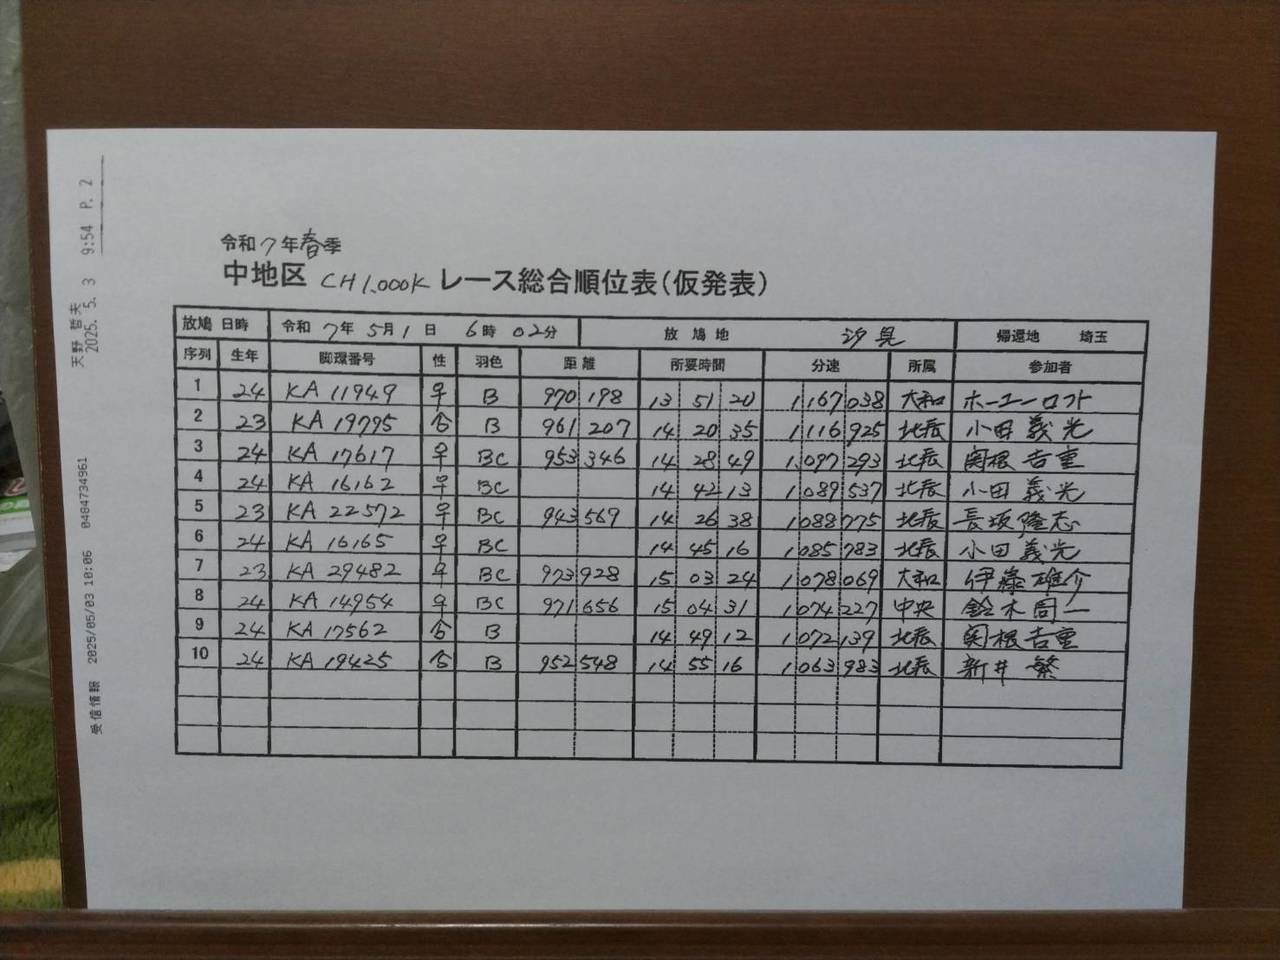 天野 哲夫
2025. 5. 3 9:54 P. 2
受信情報 2025/05/03 10:06 0484734961
令和7年春季
中地区 CH1.000K レース総合順位表(仮発表)
放鳩 日時 令和 7年 5月 1日 6時 02分 放鳩地 汐見 帰還地 埼玉
序列 生年 脚環番号 性 羽色 距離 所要時間 分速 所属 参加者
1 24 KA 11949 ♀ B 970 198 13 51 20 1,167 038 大和 ホーユーロフト
2 23 KA 19795 ♂ B 961 207 14 20 35 1,116 925 北辰 小田 義光
3 24 KA 17617 ♀ BC 953 346 14 28 49 1,097 293 北辰 関根 吉重
4 24 KA 16162 ♀ BC 14 42 13 1,089 537 北辰 小田 義光
5 23 KA 22572 ♀ BC 943 569 14 26 38 1,088 775 北辰 長坂 隆志
6 24 KA 16165 ♀ BC 14 45 16 1,085 783 北辰 小田 義光
7 23 KA 29482 ♀ BC 973 928 15 03 24 1,078 069 大和 伊藤 雄介
8 24 KA 14954 ♀ BC 971 656 15 04 31 1,074 227 中央 鈴木 周一
9 24 KA 17562 ♂ B 14 49 12 1,072 139 北辰 関根 吉重
10 24 KA 19425 ♂ B 952 548 14 55 16 1,063 983 北辰 新井 繁